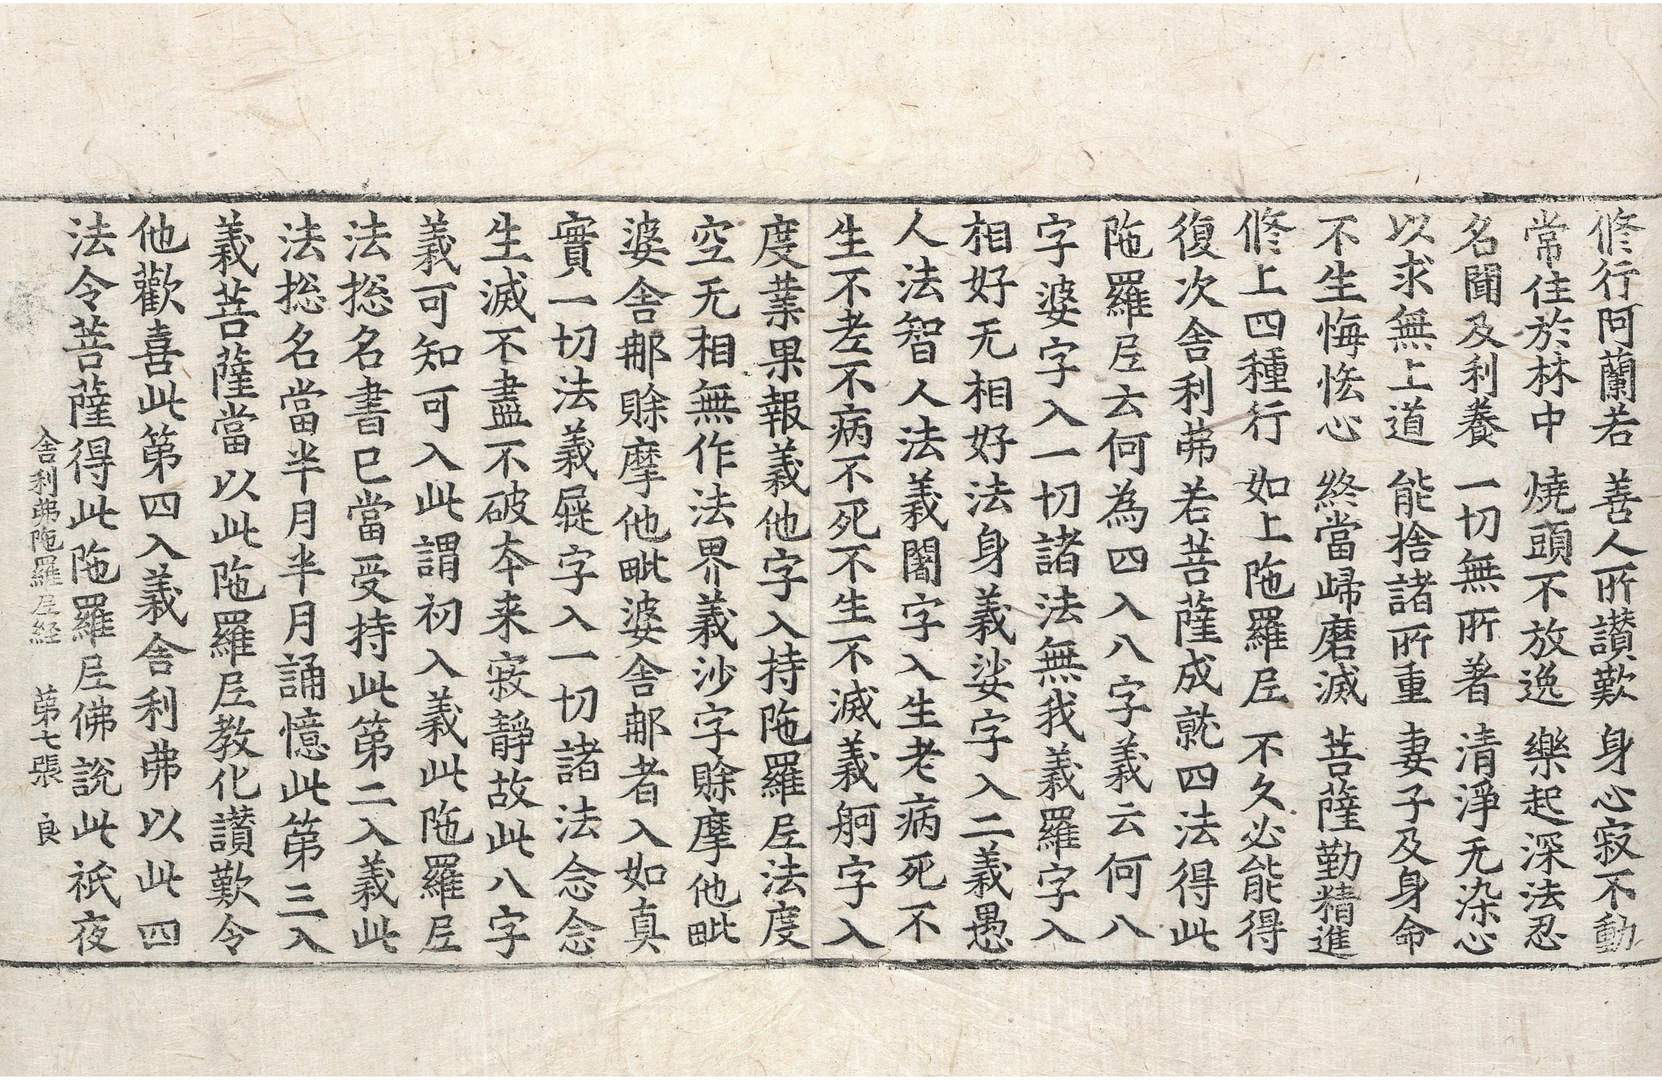 修行阿蘭若 善人所讃歎 身心寂不動
常住於林中 燒頭不放逸 樂起深法忍
名聞及利養 一切無所著 清淨无染心
以求無上道 能捨諸所重 妻子及身命
不生悔恡心 終當歸磨滅 菩薩勤精進
修上四種行 如上陁羅𡰱 不久必能得
復次舎利弗若菩薩成就四法得此
陁羅𡰱云何為四入八字義云何八
字婆字入一切諸法無我義羅字入
相好无相好法身義娑字入二義愚
人法智人法義闍字入生老病死不
生不老不病不死不生不滅義舸字入
度業果報義他字入持陁羅𡰱法度
空无相無作法界義沙字賖摩他毗
婆舎那賖摩他毗婆舎那者入如真
實一切法義屣字入一切諸法念念
生滅不盡不破本来寂静故此八字
義可知可入此謂初入義此陁羅𡰱
法揔名書已當受持此第二入義此
法揔名當半月半月誦憶此第三入
義菩薩當以此陁羅𡰱教化讃歎令
他歡喜此第四入義舎利弗以此四
法令菩薩得此陁羅𡰱佛說此祇夜
舎利弗陁羅𡰱経 第七張 良